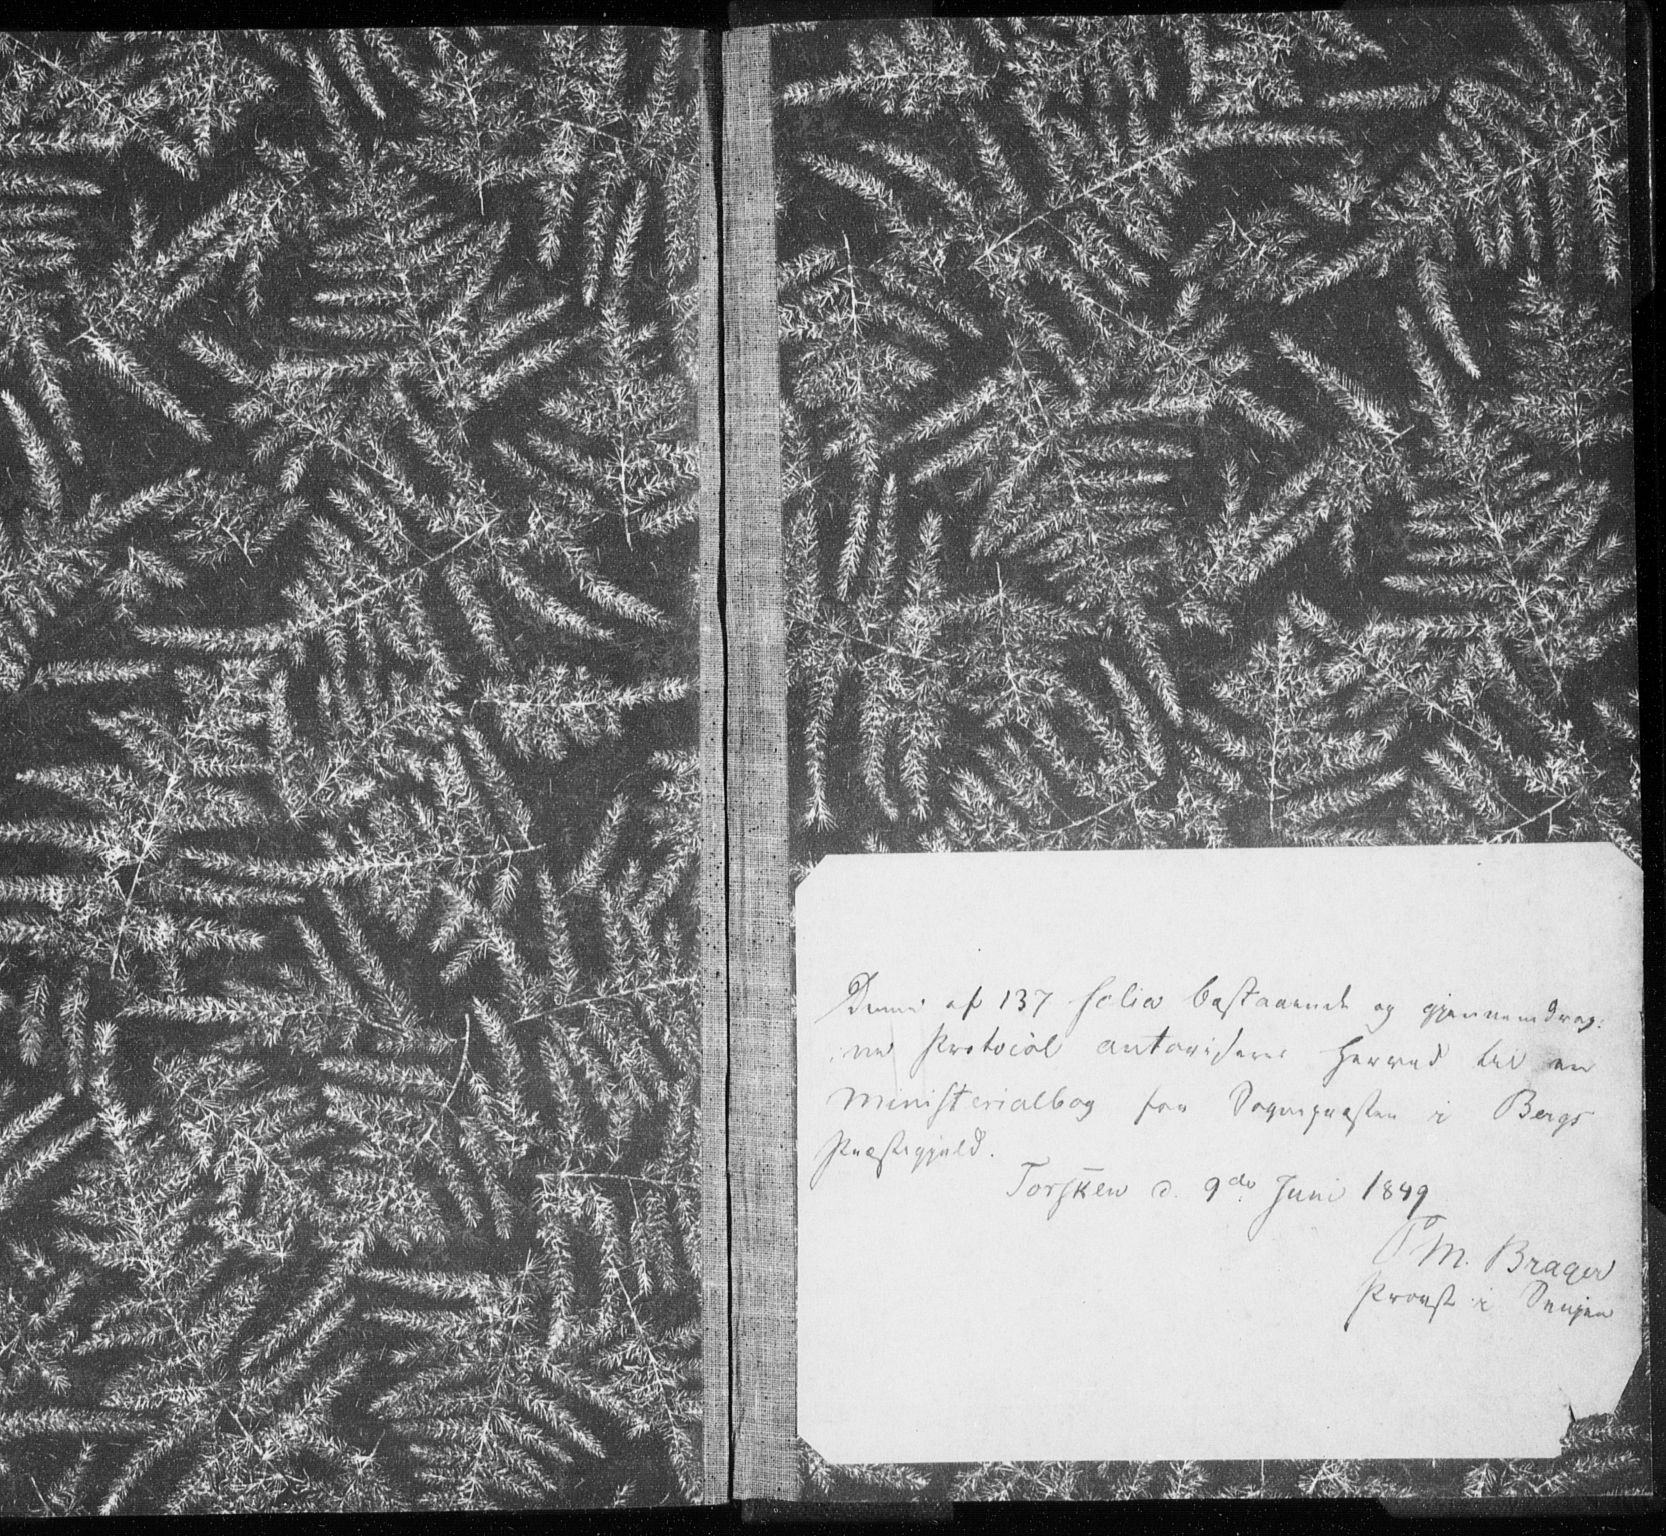 Denne af 137 folia bestaaende og gjennemdrag:
ne Protocol autoriseres herved til en
Ministerialbog for Sognepræsten i Bergs
Præstegjeld.
Torsken d. 9de Juni 1849
O M. Brager
Provst i Senjen